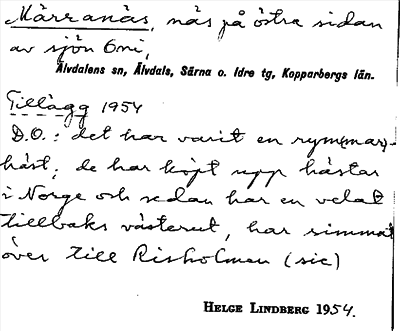 Märranäs, näs på östra sidan
av sjön Omi,
Älvdalens sn, Älvdals, Särna o. Idre tg, Kopparbergs län.
Tillägg 1954
D.O.: det har varit en rym(mar)-
häst; de har köpt upp hästar
i Norge och sedan har en velat
tillbaks västerut, har simmat
över till Risholmen (sic)
HELGE LINDBERG 1954.